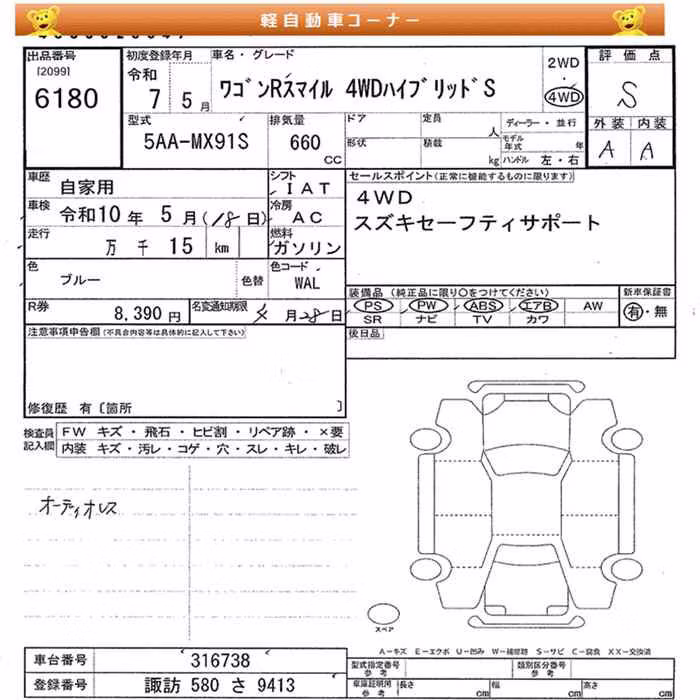 軽自動車コーナー
出品番号 初度登録年月 車名・グレード 評価点
[2099]
6180
令和 7 5月
ワゴンRスマイル 4WDハイブリッドS
2WD
・
4WD
S
外装 内装
A A
型式 排気量 ドア 定員 人 ディーラー・並行
5AA-MX91S 660 CC
形状 積載 kg モデル年式 年
ハンドル 左・右
車歴 自家用 シフト IAT
車検 令和10年 5月(18日) 冷房 AC
走行 万 千 15 km 燃料 ガソリン
色 ブルー 色替 色コード WAL
R券 8,390円 名変通知期限 月28日
セールスポイント(正常に機能するものに限ります)
4WD
スズキセーフティサポート
装備品 (純正品に限り○をつけてください) 新車保証書
PS PW ABS エアB AW 有・無
SR ナビ TV カワ
注意事項申告欄(不具合内容等は具体的に記入して下さい) 後日品
修復歴 有〔箇所 〕
検査員記入欄 FW キズ・飛石・ヒビ割・リペア跡・×要
内装 キズ・汚レ・コゲ・穴・スレ・キレ・破レ
オーディオレス
スペア
A-キズ E-エクボ U-凹み W-補修跡 S-サビ C-腐食 XX-交換済
車台番号 316738
登録番号 諏訪 580 さ 9413
型式指定番号 参考 類別区分番号 参考
車庫証明用 参考 長さ cm 幅 cm 高さ cm